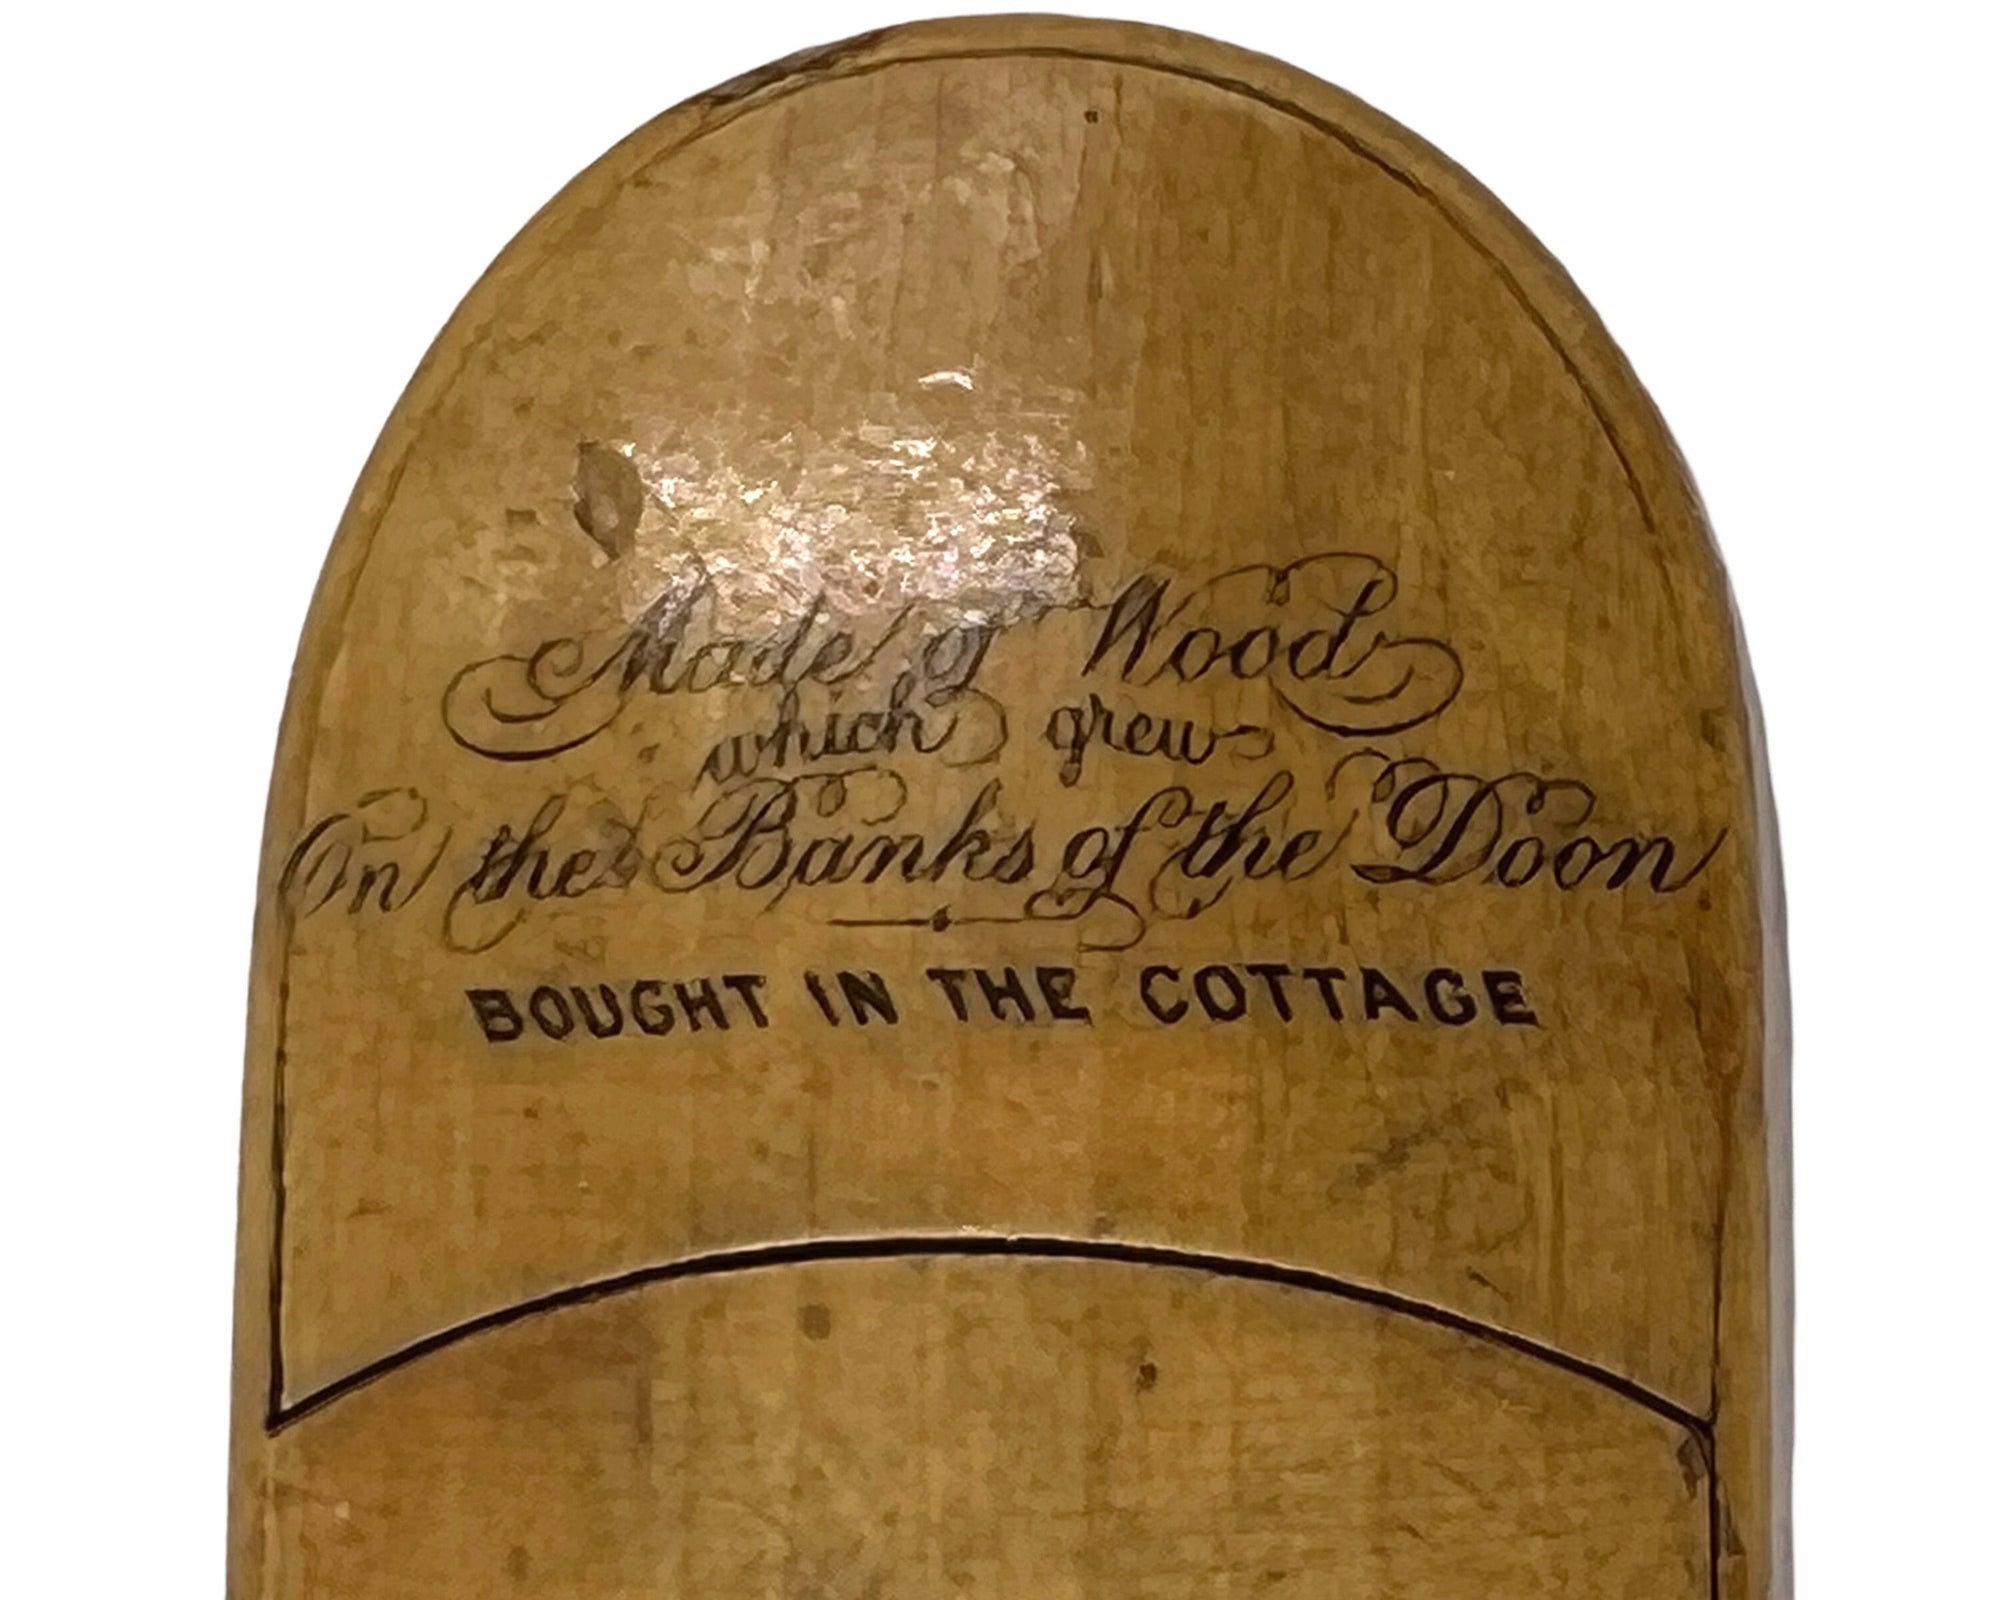 Made of Wood
which grew
On the Banks of the Doon
BOUGHT IN THE COTTAGE